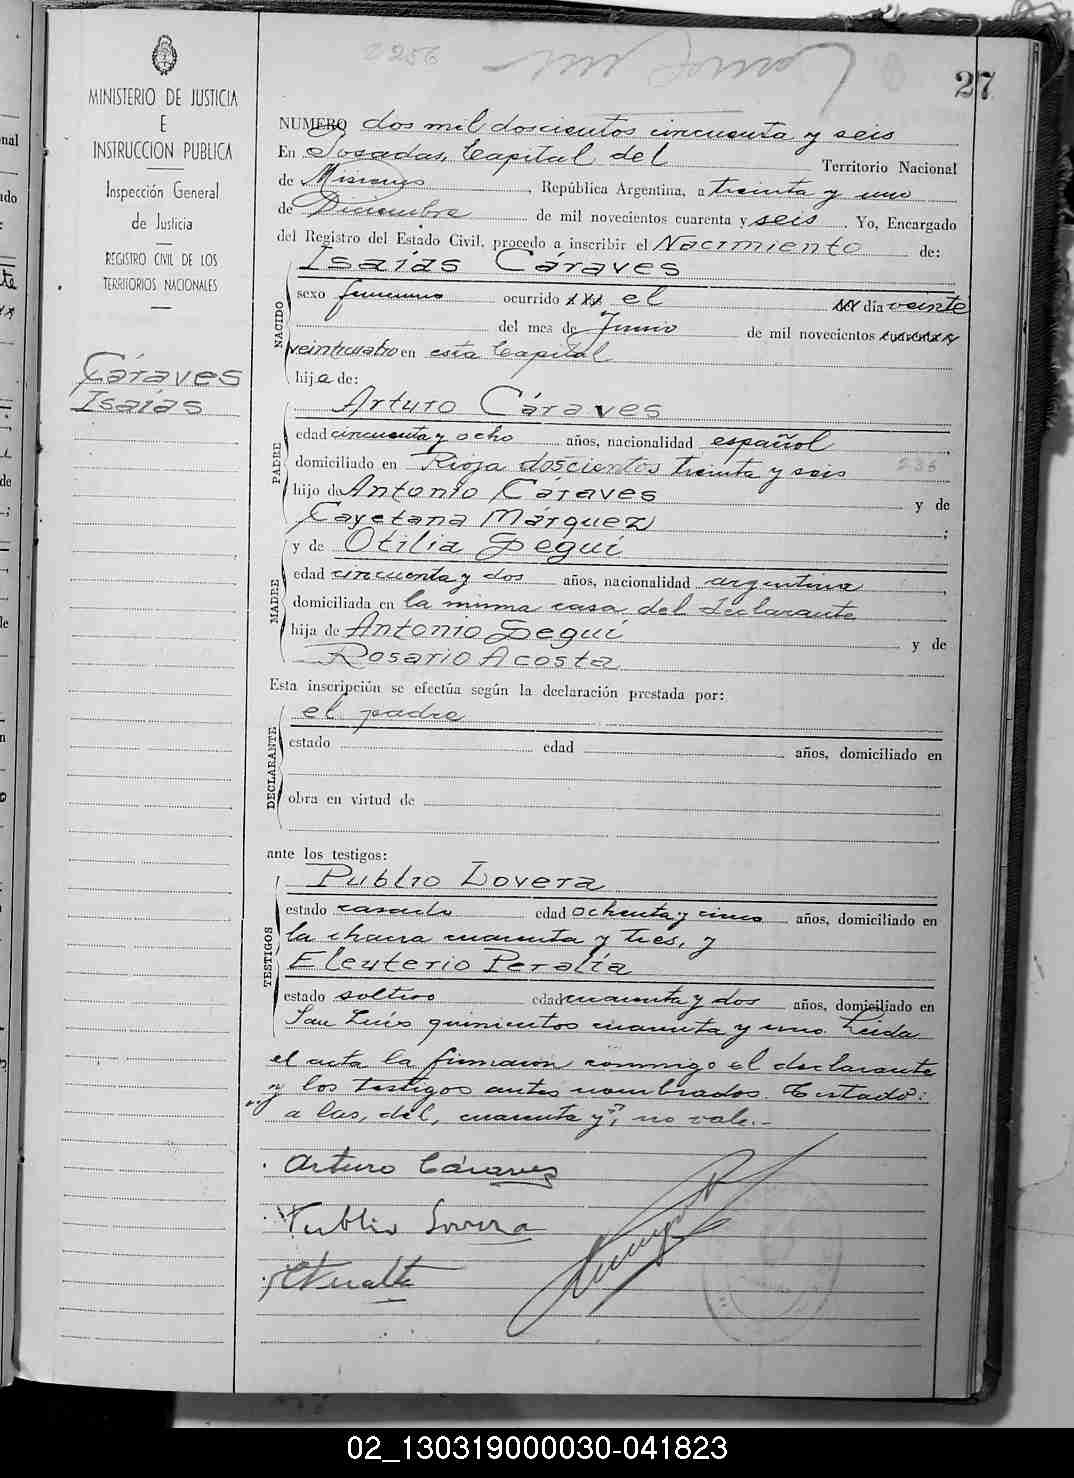 2256
27
MINISTERIO DE JUSTICIA
E
INSTRUCCION PUBLICA
Inspección General
de Justicia
REGISTRO CIVIL DE LOS
TERRITORIOS NACIONALES
Cáraves
Isaías
NUMERO dos mil doscientos cincuenta y seis
En Posadas, Capital del Territorio Nacional
de Misiones, República Argentina, a treinta y uno
de Diciembre de mil novecientos cuarenta y seis. Yo, Encargado
del Registro del Estado Civil, procedo a inscribir el Nacimiento de:
NACIDO
Isaías Cáraves
sexo femenino ocurrido xxx el xx día veinte
del mes de Junio de mil novecientos cuarenta y
veinticuatro en esta Capital
hija de:
PADRE
Arturo Cáraves
edad cincuenta y ocho años, nacionalidad español
domiciliado en Rioja doscientos treinta y seis 236
hijo de Antonio Cáraves y de
Cayetana Márquez ;
MADRE
y de Otilia Seguí
edad cincuenta y dos años, nacionalidad argentina
domiciliada en la misma casa del declarante
hija de Antonio Seguí y de
Rosario Acosta
Esta inscripción se efectúa según la declaración prestada por:
DECLARANTE
el padre
estado edad años, domiciliado en
obra en virtud de
ante los testigos:
TESTIGOS
Publio Lovera
estado casado edad ochenta y cinco años, domiciliado en
la chacra cuarenta y tres, y
Eleuterio Peralta
estado soltero edad cuarenta y dos años, domiciliado en
San Luís quinientos cuarenta y uno. Leida
el acta la firmaron conmigo el declarante
y los testigos antes nombrados. Testado:
"a las, del, cuarenta y", no vale.-
Arturo Cáraves
Publio Lovera
Peralta
02_130319000030-041823